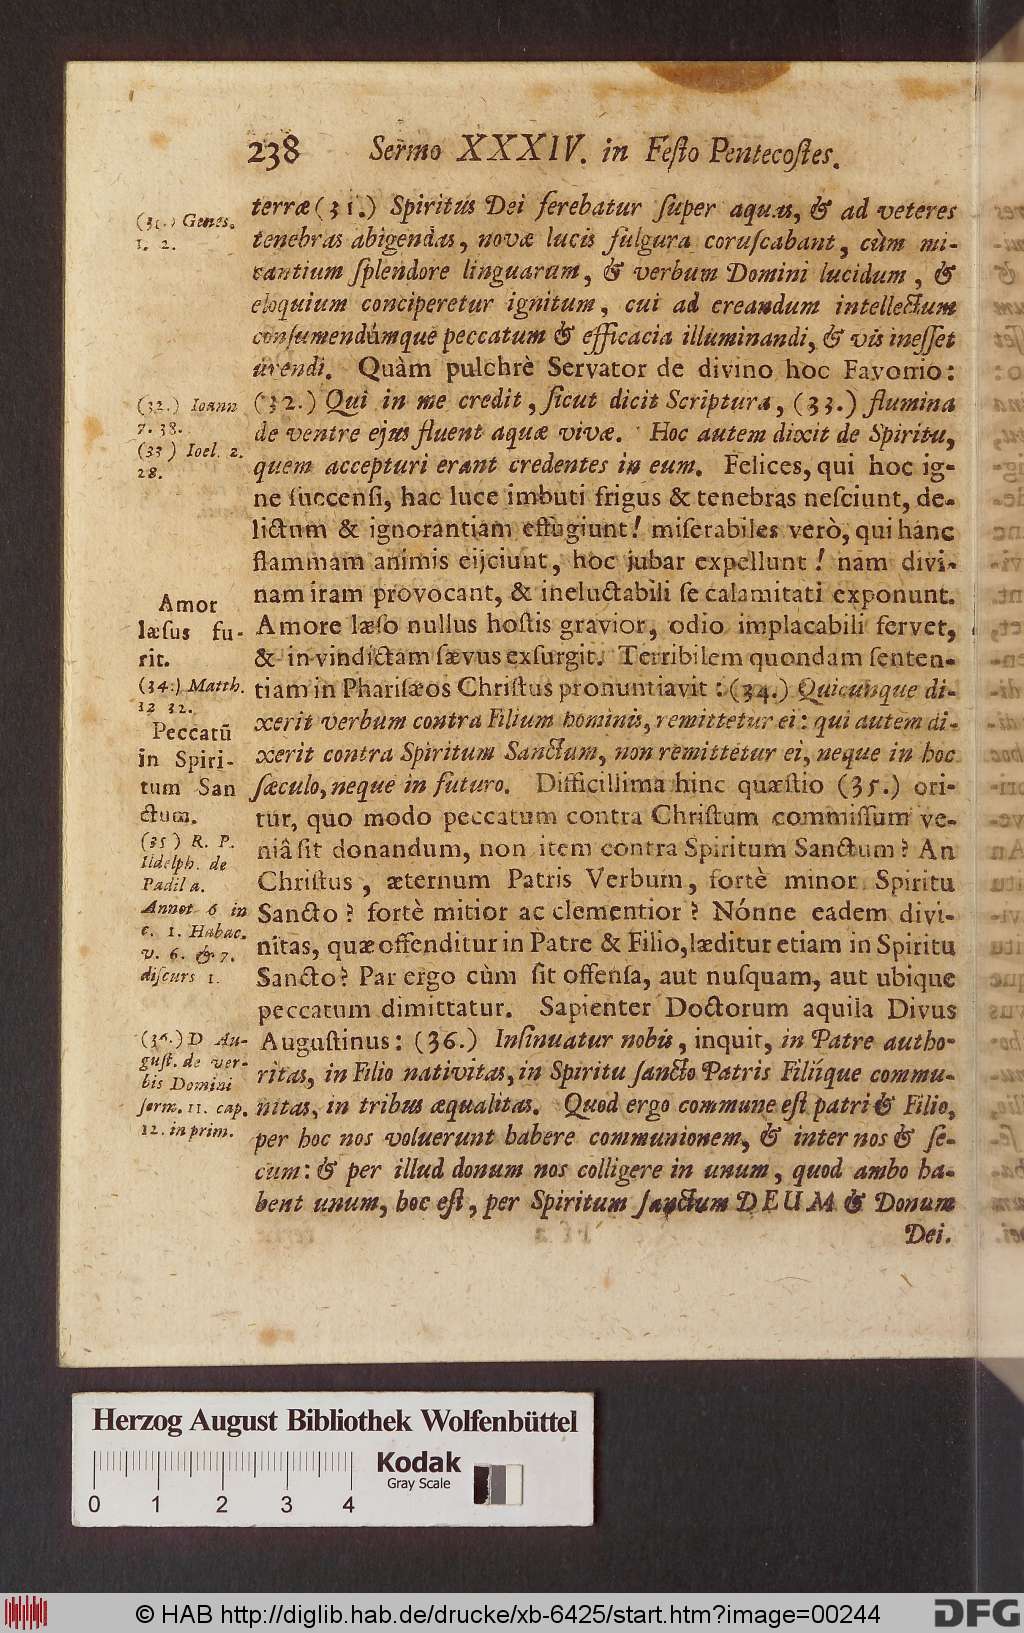 238 Sermo XXXIV. in Feſto Pentecoſtes.
terræ (31.) Spiritus Dei ferebatur ſuper aquas, & ad veteres
tenebras abigendas, novæ lucis fulgura coruſcabant, cùm mi-
cantium ſplendore linguarum, & verbum Domini lucidum, &
eloquium conciperetur ignitum, cui ad creandum intellectum
conſumendúmque peccatum & efficacia illuminandi, & vis ineſſet
urendi. Quàm pulchrè Servator de divino hoc Favonio:
(32.) Qui in me credit, ſicut dicit Scriptura, (33.) flumina
de ventre ejus fluent aquæ vivæ. Hoc autem dixit de Spiritu,
quem accepturi erant credentes in eum. Felices, qui hoc ig-
ne ſuccenſi, hac luce imbuti frigus & tenebras neſciunt, de-
lictum & ignorantiam effugiunt! miſerabiles verò, qui hanc
flammam animis eijciunt, hoc jubar expellunt! nam divi-
nam iram provocant, & ineluctabili ſe calamitati exponunt.
Amore læſo nullus hoſtis gravior, odio implacabili fervet,
& in vindictam ſævus exſurgit. Terribilem quondam ſenten-
tiam in Phariſæos Chriſtus pronuntiavit: (34.) Quicunque di-
xerit verbum contra Filium hominis, remittetur ei: qui autem di-
xerit contra Spiritum Sanctum, non remittetur ei, neque in hoc
ſæculo, neque in futuro. Difficillima hinc quæſtio (35.) ori-
tur, quo modo peccatum contra Chriſtum commiſſum ve-
niâ ſit donandum, non item contra Spiritum Sanctum? An
Chriſtus, æternum Patris Verbum, fortè minor Spiritu
Sancto? fortè mitior ac clementior? Nónne eadem divi-
nitas, quæ offenditur in Patre & Filio, læditur etiam in Spiritu
Sancto? Par ergo cùm ſit offenſa, aut nuſquam, aut ubique
peccatum dimittatur. Sapienter Doctorum aquila Divus
Auguſtinus: (36.) Inſinuatur nobis, inquit, in Patre autho-
ritas, in Filio nativitas, in Spiritu ſancto Patris Filiíque commu-
nitas, in tribus æqualitas. Quod ergo commune eſt patri & Filio,
per hoc nos voluerunt habere communionem, & inter nos & ſe-
cum: & per illud donum nos colligere in unum, quod ambo ha-
bent unum, hoc eſt, per Spiritum ſanctum DEUM & Donum
Dei.
(31.) Geneſ.
1. 2.
(32.) Ioann
7. 38.
(33) Ioel. 2.
28.
Amor
læſus fu-
rit.
(34.) Matth.
12 32.
Peccatũ
in Spiri-
tum San
ctum.
(35) R. P.
Ildelph. de
Padil a.
Annot 6 in
c. 1. Habac.
v. 6. & 7.
diſcurſ 1.
(36.) D Au-
guſt. de ver-
bis Domini
ſerm. 11. cap.
12. in prim.
Herzog August Bibliothek Wolfenbüttel
Kodak
Gray Scale
0 1 2 3 4
© HAB http://diglib.hab.de/drucke/xb-6425/start.htm?image=00244
DFG